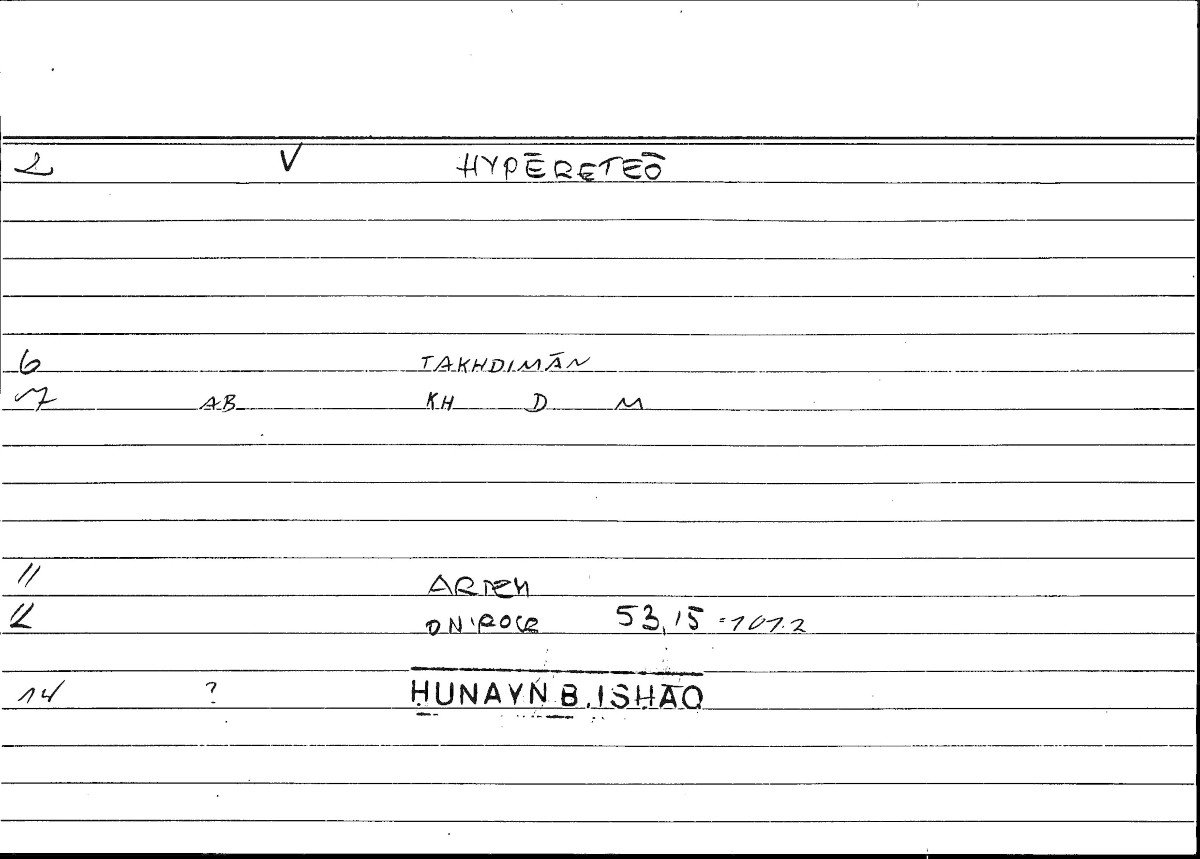 2 V HYPĒRETEŌ
6 TAKHDIMĀN
7 AB KH D M
11 ARTEM
12 ONIROCR 53,15 = 101.2
14 ? HUNAYN B. ISHAQ